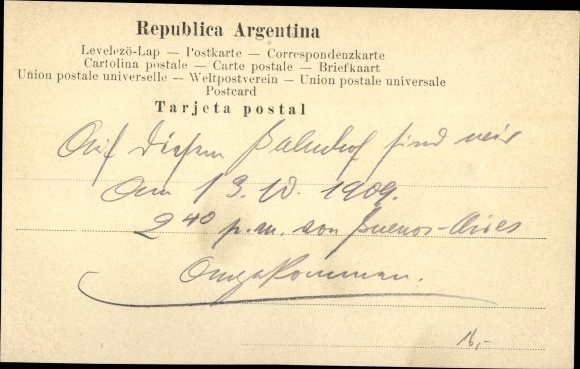 Republica Argentina
Levelezö-Lap — Postkarte — Correspondenzkarte
Cartolina postale — Carte postale — Briefkaart
Union postale universelle — Weltpostverein — Union postale universale
Postcard
Tarjeta postal
Auf diesem Bahnhof sind wir
am 13.10.1909.
2 40 p.m. von Buenos-Aires
angekommen.
16,-